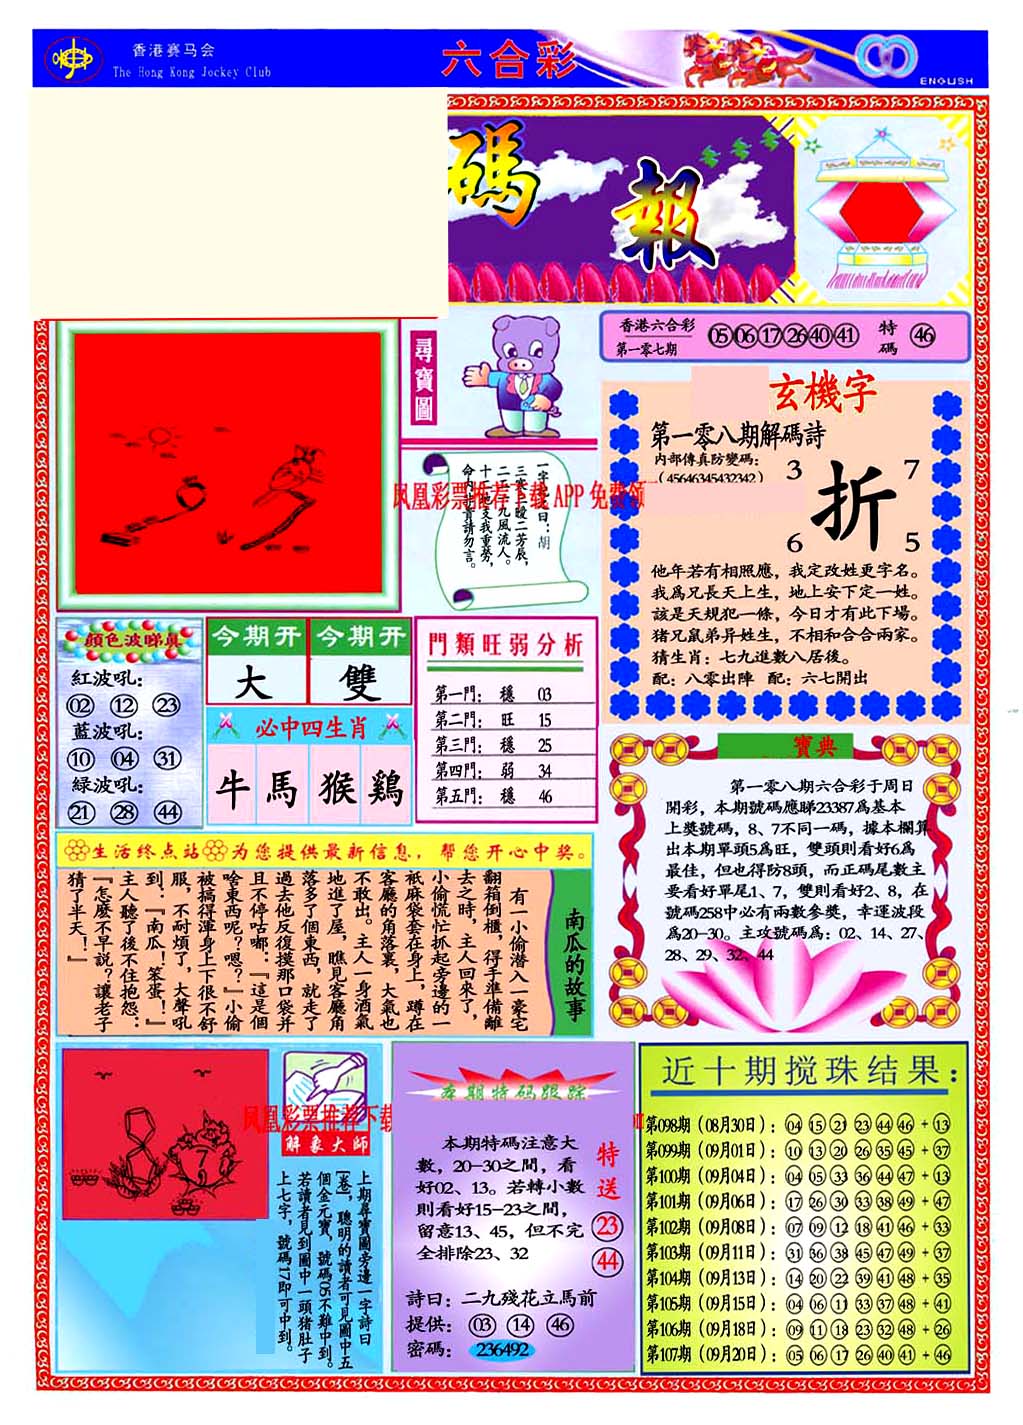 香港赛马会
The Hong Kong Jockey Club
六合彩
ENGLISH
碼報
尋寶圖
香港六合彩
第一零七期
05 06 17 26 40 41
特碼
46
玄機字
第一零八期解碼詩
内部傳真防變碼:
(45646345432342)
3 7
折
6 5
他年若有相照應，我定改姓更字名。
我爲兄長天上生，地上安下定一姓。
該是天規犯一條，今日才有此下場。
猪兄鼠弟异姓生，不相和合合兩家。
猜生肖：七九進數八居後。
配：八零出陣 配：六七開出
凤凰彩票推荐下载 APP 免费领
三寒三暧二芳辰，
二三二九風流人。
十二地支我重勞，
命内非貴請勿言。
顔色波睇真
紅波吼:
02 12 23
蓝波吼:
10 04 31
緑波吼:
21 28 44
今期开 今期开
大 雙
必中四生肖
牛 馬 猴 鷄
門類旺弱分析
第一門： 穩 03
第二門： 旺 15
第三門： 穩 25
第四門： 弱 34
第五門： 穩 46
寶典
第一零八期六合彩于周日
開彩，本期號碼應睇23387爲基本
上獎號碼，8、7不同一碼，據本欄算
出本期單頭5爲旺，雙頭則看好6爲
最佳，但也得防8頭，而正碼尾數主
要看好單尾1、7，雙則看好2、8，在
號碼258中必有兩數參獎，幸運波段
爲20-30。主攻號碼爲：02、14、27、
28、29、32、44
生活终点站 为您提供最新信息，帮您开心中奖。
南瓜的故事
有一小偷潜入一豪宅
翻箱倒櫃，得手準備離
去之時，主人回來了，
小偷慌忙抓起旁邊的一
衹麻袋套在身上，蹲在
客廳的角落裏，大氣也
不敢出。主人一身酒氣
地進了屋，瞧見客廳角
落多了個東西，就走了
過去他反復摸那口袋并
且不停咕嘟：『這是個
啥東西呢？嗯？』小偷
被搞得渾身上下很不舒
服，不耐煩了，大聲吼
到：『南瓜！笨蛋！』
主人聽了後不住抱怨：
『怎麽不早說？讓老子
猜了半天！』
凤凰彩票推荐下载
解象大師
上期尋寶圖旁邊一字詩曰
[卷]，聰明的讀者可見圖中五
個金元寶，號碼05不難中到。
若讀者見到圖中一頭猪肚子
上七字，號碼17即可中到。
本期特码跟踪
本期特碼注意大
數，20-30之間，看
好02、13。若轉小數
則看好15-23之間，
留意13、45，但不完
全排除23、32
特送
23
44
詩曰：二九殘花立馬前
提供： 03 14 46
密碼： 236492
近十期搅珠结果：
第098期（08月30日）：04 15 21 23 44 46 + 13
第099期（09月01日）：10 13 20 26 35 45 + 37
第100期（09月04日）：04 05 33 36 44 47 + 13
第101期（09月06日）：17 26 30 33 38 49 + 47
第102期（09月08日）：07 09 12 18 41 46 + 33
第103期（09月11日）：31 36 38 45 47 49 + 37
第104期（09月13日）：14 20 22 39 41 48 + 35
第105期（09月15日）：04 06 11 33 37 48 + 41
第106期（09月18日）：09 11 18 23 32 48 + 26
第107期（09月20日）：05 06 17 26 40 41 + 46